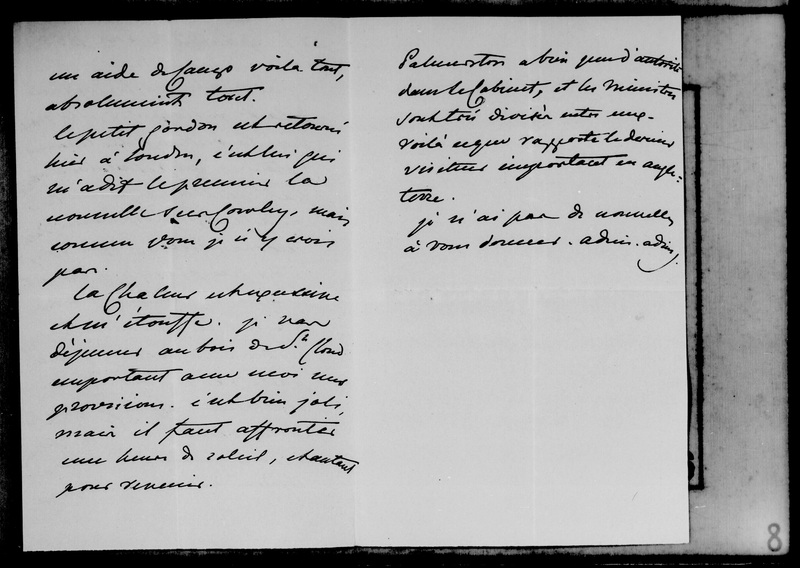 un aide de camps voilà tout,
absolument tout.
le petit gordon est retourné
hier à Londres, c'est lui qui
m'a dit le premier la
nouvelle sur Cowley, mais
comme vous je n'y crois
pas.
la Chaleur est
et m'étouffe. je vais
déjeuner au bois de St Cloud
emportant avec moi mes
provisions. c'est bien joli,
mais il faut affronter
une heure de soleil, et autant
pour revenir.
Palmerston a bien peu d'autorité
dans le Cabinet, et les Ministres
sont très divisés entre eux.
voilà ce que rapporte le dernier
visiteur important en angle-
terre.
je n'ai pas de nouvelles
à vous donner. adieu. adieu.
8